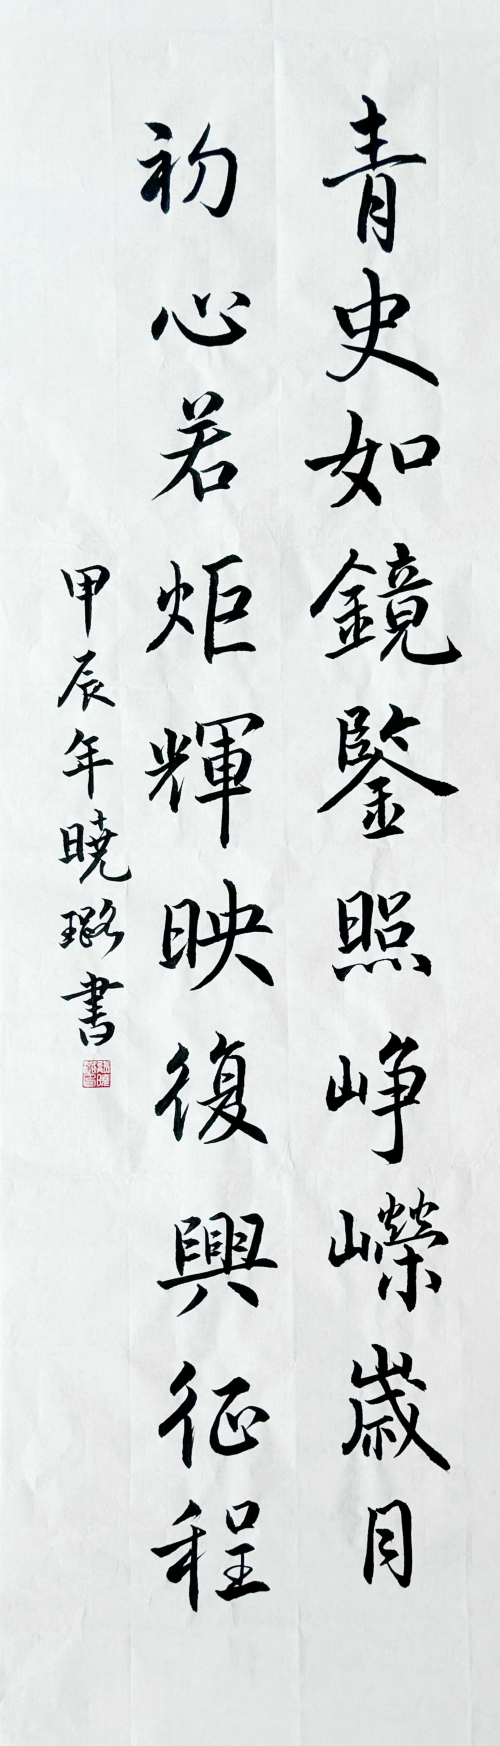 青史如鏡鑒照崢嶸歲月
初心若炬輝映復興征程
甲辰年曉璐書